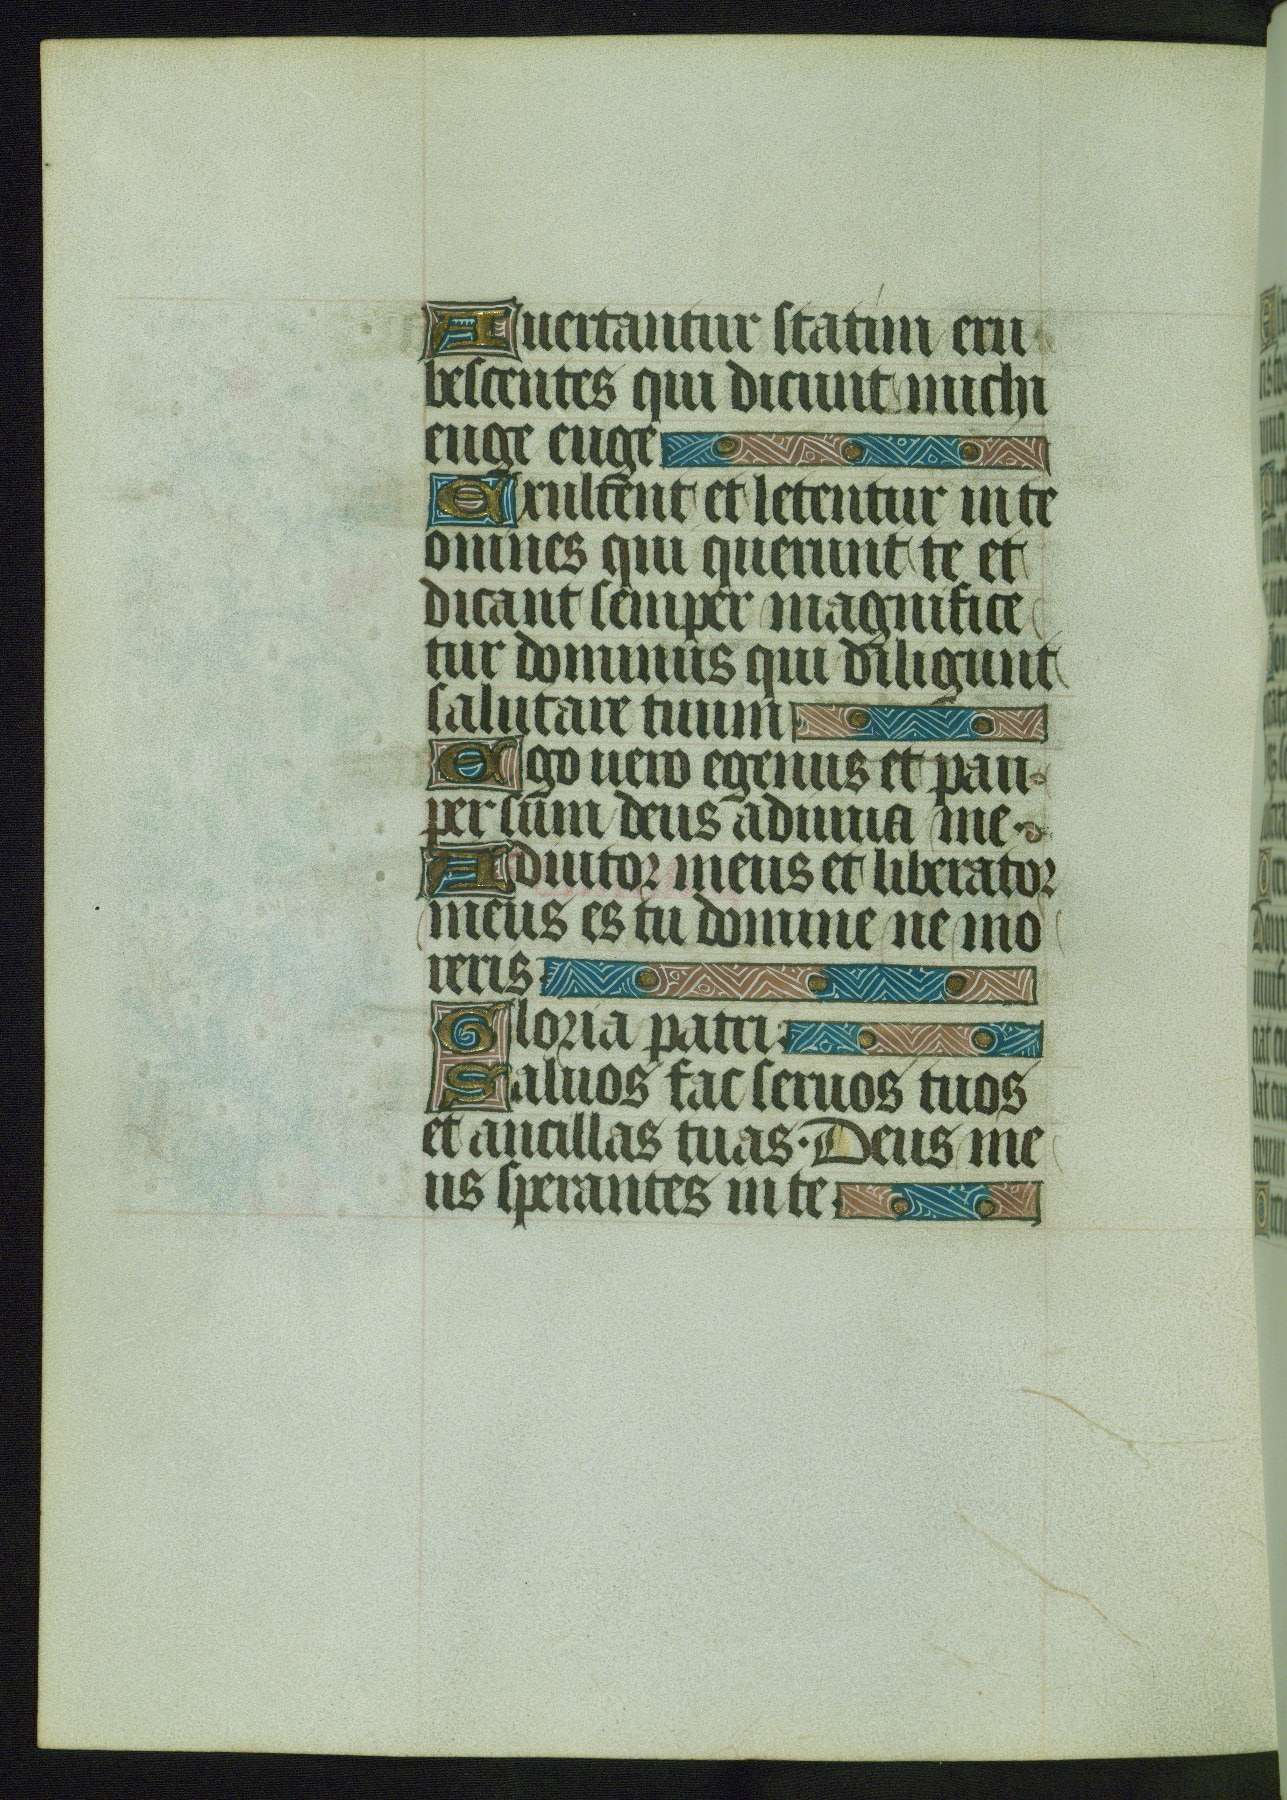 Auertantur statim eru
bescentes qui dicunt michi
euge euge
Exultent et letentur in te
omnes qui querunt te et
dicant semper magnifice
tur dominus qui diligunt
salutare tuum
Ego uero egenus et pau
per sum deus adiuua me
Adiutor meus et liberator
meus es tu domine ne mo
reris
Gloria patri
Saluos fac seruos tuos
et ancillas tuas · Deus me
us sperantes in te